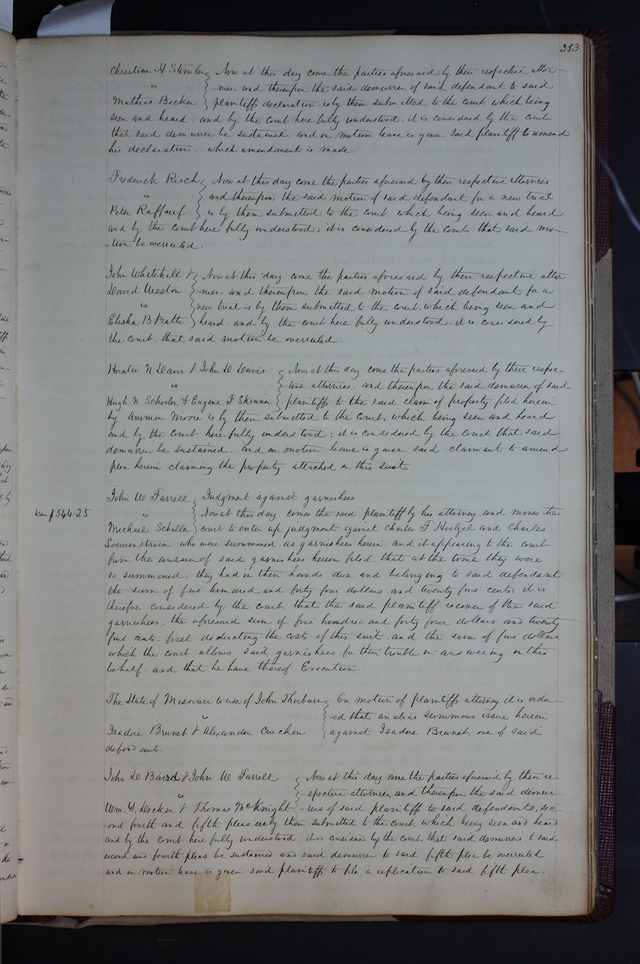 353
Christian H Steinberg Now at this day come the parties aforesaid by their respective attor-
" neis. and thereupon the said demurrer of said defendant to said
Mathias Becker plaintiffs declaration is by them submitted to the court which being
seen and heard. and by the court here fully understood. it is considered by the court
that said demurrer be sustained. and on motion leave is given said plaintiff to amend
his declaration. which amendment is made
Frederick Risch Now at this day come the parties aforesaid by their respective attornies
" and thereupon the said motion of said defendant for a new trial
Peter is by them submitted to the court. which being seen and heard
and by the court here fully understood; it is considered by the court that said mo-
tion be overruled.
John Whitehill & Now at this day come the parties aforesaid by their respective attor
David Weston nies. and thereupon the said motion of said defendant for a
" new trial is by them submitted to the court. which being seen and
Elisha B heard. and by the court here fully understood. it is considered by
the court. that said motion be overruled.
Horatio N Davis & John D Davis Now at this day come the parties aforesaid by their respec-
" tive attornies. and thereupon the said demurrer of said
Hugh N Schooler & Eugene F Skinner plaintiffs to the said claim of property filed herein
by Moore is by them submitted to the court which being seen and heard
and by the court here fully understood; it is considered by the court that said
demurrer be sustained. and on motion leave is given said claimant to amend
plea herein claiming the property attached in this suit.
John W Farrell Judgment against garnishees
$544.25 " Now at this day comes the said plaintiff by his attorney. and moves the
Michael court to enter up judgment against Charles F and Charles
who were summoned as garnishees herein and it appearing to the court
from the answer of said garnishees herein filed that at the time they were
so summoned. they had in their hands due and belonging to said defendant
the sum of five hundred and forty four dollars and twenty five cents it is
therefore considered by the court that the said plaintiff recover of the said
garnishees, the aforesaid sum of five hundred and forty four dollars and twenty
five cents. first deducting the costs of this suit. and the sum of five dollars
which the court allows said garnishees for their trouble in answering in this
behalf. and that he have thereof Execution
The State of Missouri to use of John Thorburn On motion of plaintiffs attorney it is order-
" ed that an alias summons issue herein
Isadore Brunet & Alexander against Isadore Brunet one of said
defendants.
John D Baird & John W Farrell Now at this day come the parties aforesaid by their re-
" spective attornies and thereupon the said demur-
Wm. Y. Decker & Thomas McKnight rers of said plaintiff to said defendants, sec-
ond fourth and fifth pleas are by them submitted to the court which being seen and heard
and by the court here fully understood. it is considered by the court that said demurrers to said
second and fourth pleas be sustained and said demurrer to said fifth plea be overruled
and on motion leave is given said plaintiffs to file a replication to said fifth plea.